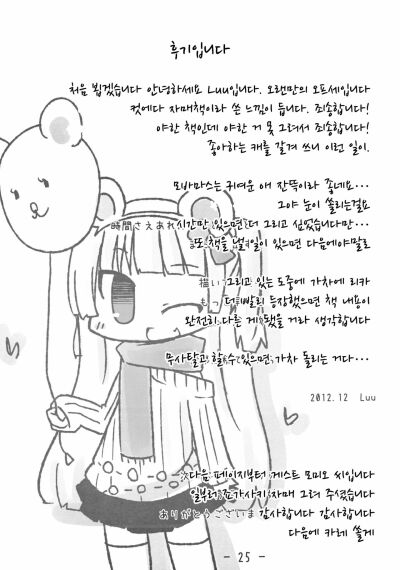 후기입니다
처음 뵙겠습니다 안녕하세요 Luu입니다. 오랜만의 오프셋입니다
컷에다 자매책이라 쓴 느낌이 듭니다. 죄송합니다!
야한 책인데 야한 거 못 그려서 죄송합니다!
좋아하는 캐를 갈겨 쓰니 이런 일이.
모바마스는 귀여운 애 잔뜩이라 좋네요...
그야 눈이 쏠리는걸요
時間さえあれ시간만 있으면 더 그리고 싶었습니다만...
또 책을 낼 일이 있으면 다음에야말로
描い 그리고 있는 도중에 가챠에 리카
もっ 더 빨리 등장했으면 책 내용이
완전히 다른 게 됐을 거라 생각합니다
무사탈고 할 수 있으면 가챠 돌리는 거다...
2012.12 Luu
다음 페이지부터 게스트 모미오 씨입니다
일부러 죠가사키 자매 그려 주셨습니다
ありがとうございま 감사합니다 감사합니다
다음에 카레 쏠게
- 25 -